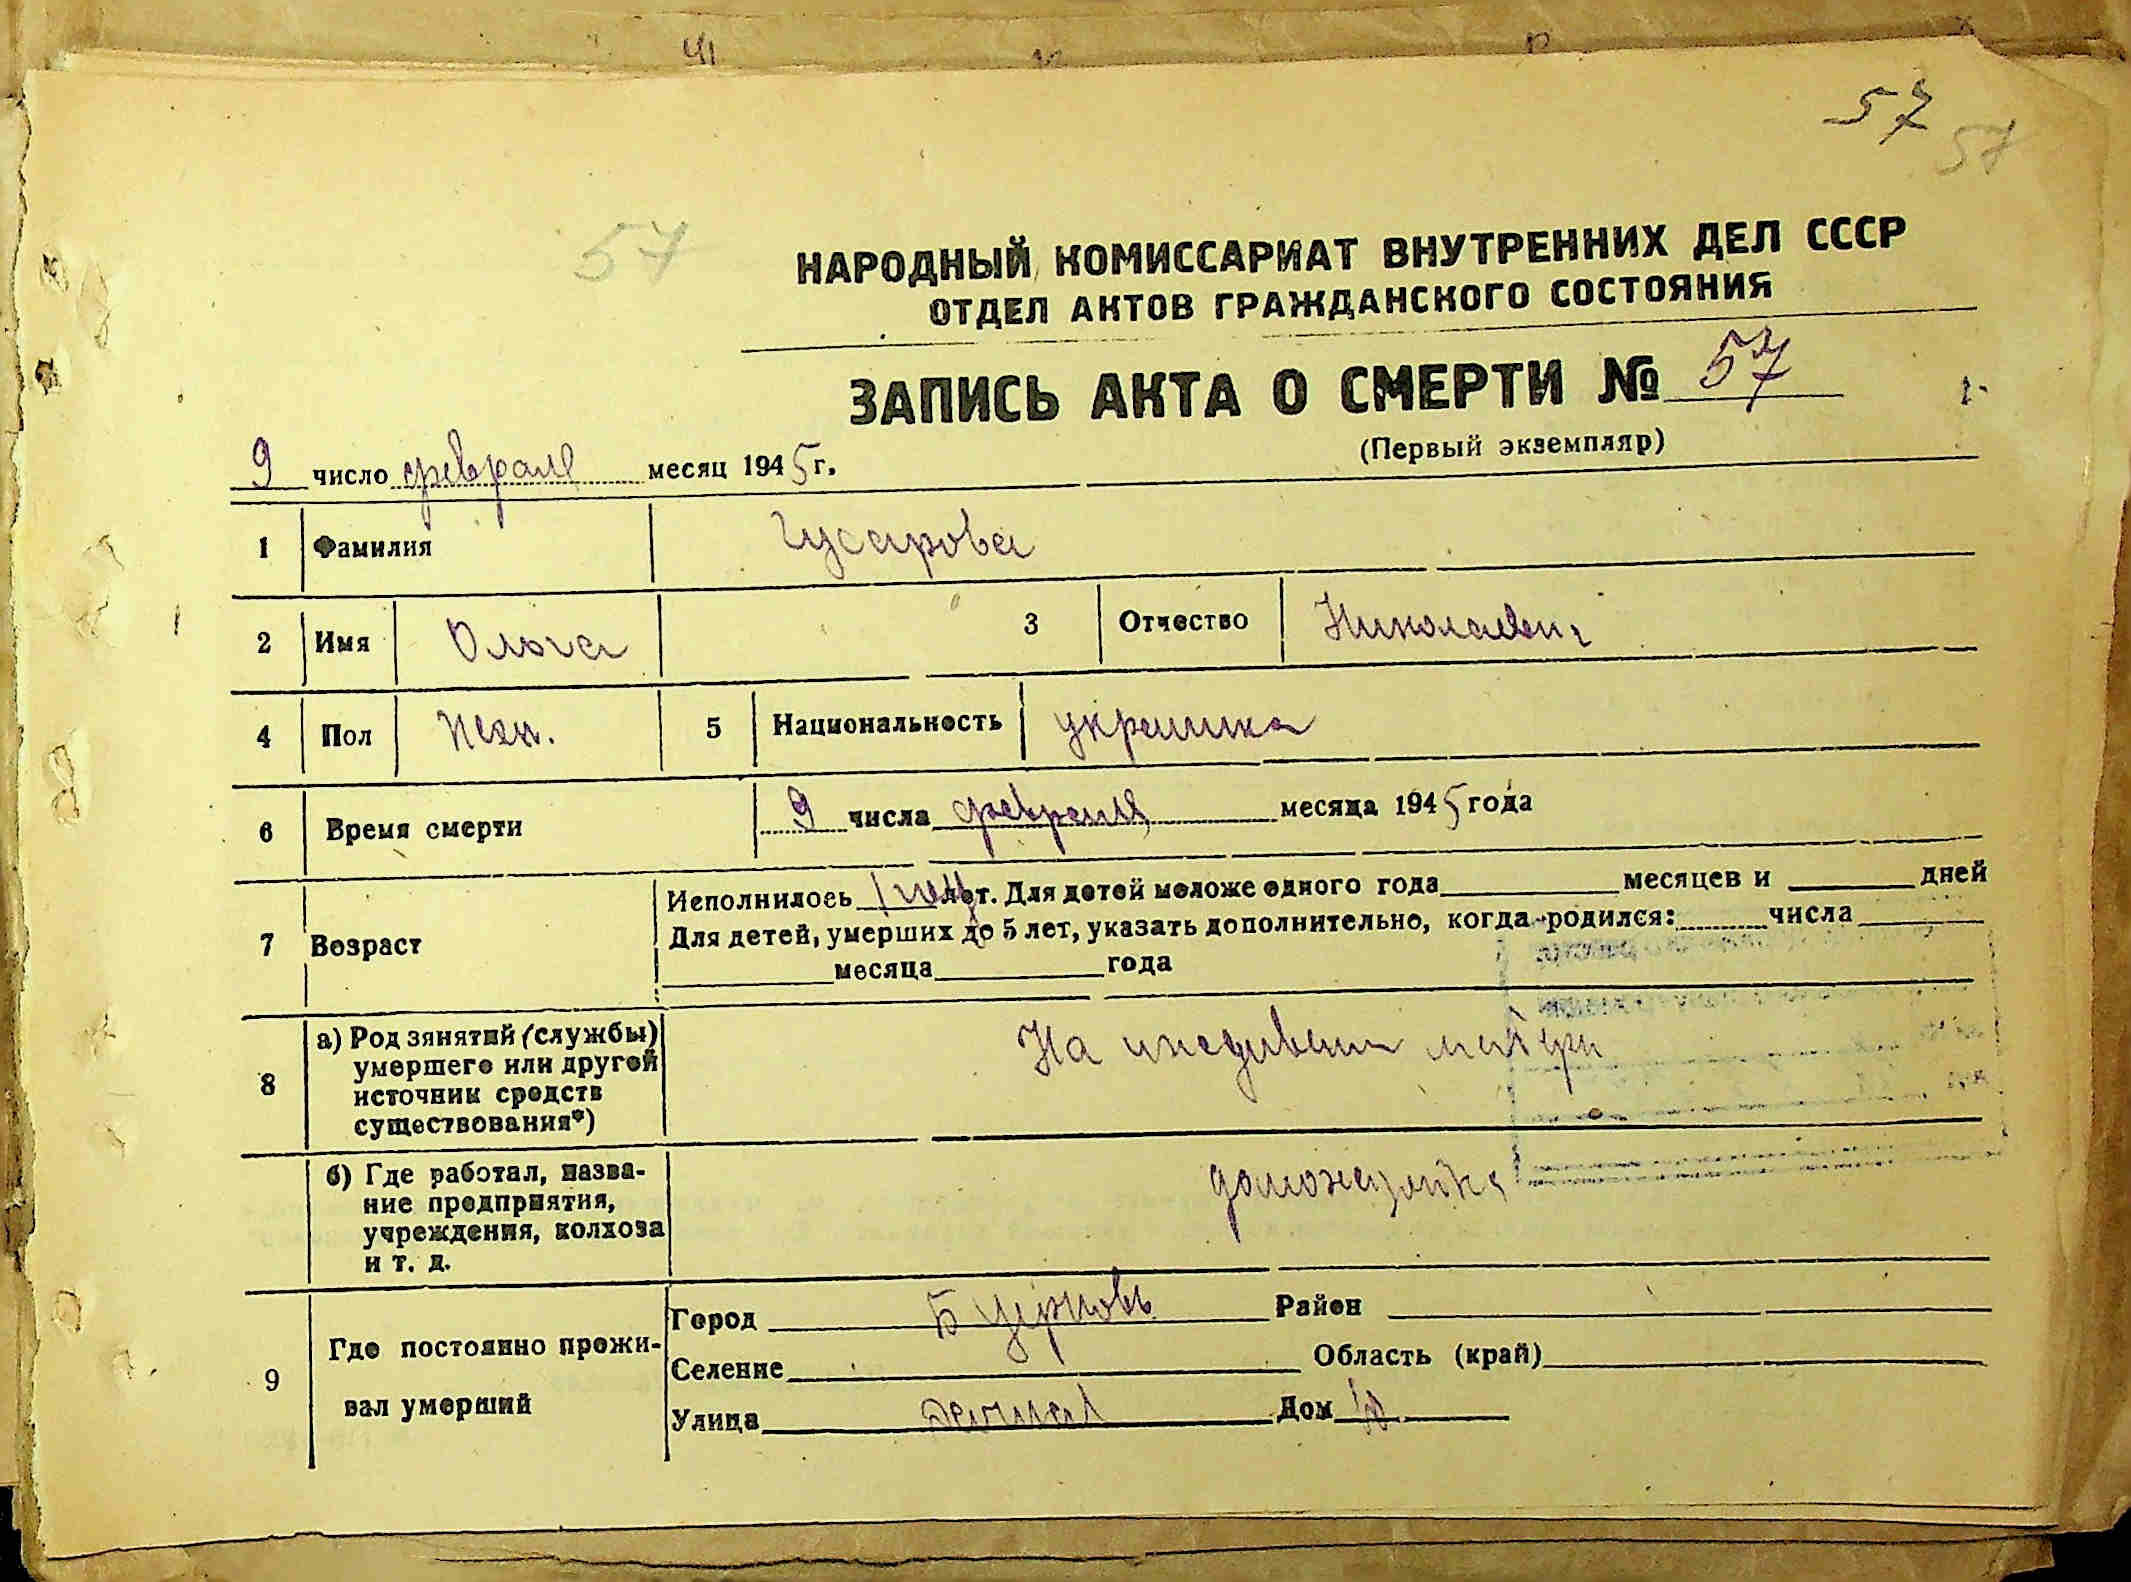 57
57
57
НАРОДНЫЙ КОМИССАРИАТ ВНУТРЕННИХ ДЕЛ СССР
ОТДЕЛ АКТОВ ГРАЖДАНСКОГО СОСТОЯНИЯ
ЗАПИСЬ АКТА О СМЕРТИ № 57
(Первый экземпляр)
9 число февраля месяц 1945 г.
1 Фамилия Гусарова
2 Имя Ольга 3 Отчество
4 Пол жен. 5 Национальность
6 Время смерти 9 числа февраля месяца 1945 года
7 Возраст
Исполнилось 1 год лет. Для детей моложе одного года месяцев и дней
Для детей, умерших до 5 лет, указать дополнительно, когда родился: числа
месяца года
8 а) Род занятий (службы) умершего или другой источник средств существования*) На иждивении матери
б) Где работал, название предприятия, учреждения, колхоза и т. д. домохозяйка
9 Где постоянно проживал умерший
Город Район
Селение Область (край)
Улица Дом